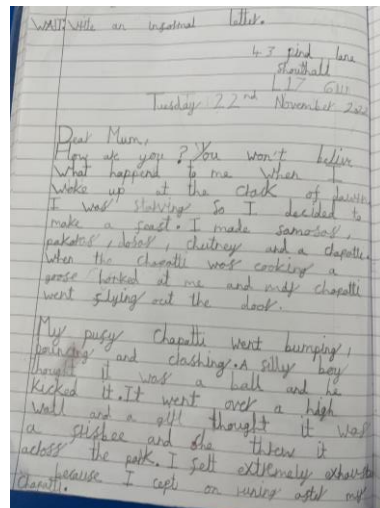 WALT: Write an informal letter.
43 pind lane
Shouthall
L17 6UJ
Tuesday 22nd November 2022
Dear Mum,
How are you? You won't belive
what happend to me when I
woke up at the crack of dawn
I was starving so I decided to
make a feast. I made samosas,
pakoras, dosas, chutney and a chapatti.
when the chapatti was cooking a
goose honked at me and my chapatti
went flying out the door.
My pusy chapatti went bumping,
bouncing and clashing. A silly boy
thought it was a ball and he
kicked it. It went over a high
wall and a girl thought it was
a frisbee and she threw it
across the park. I felt extremely exhausted
because I cept on runing after my
chapatti.